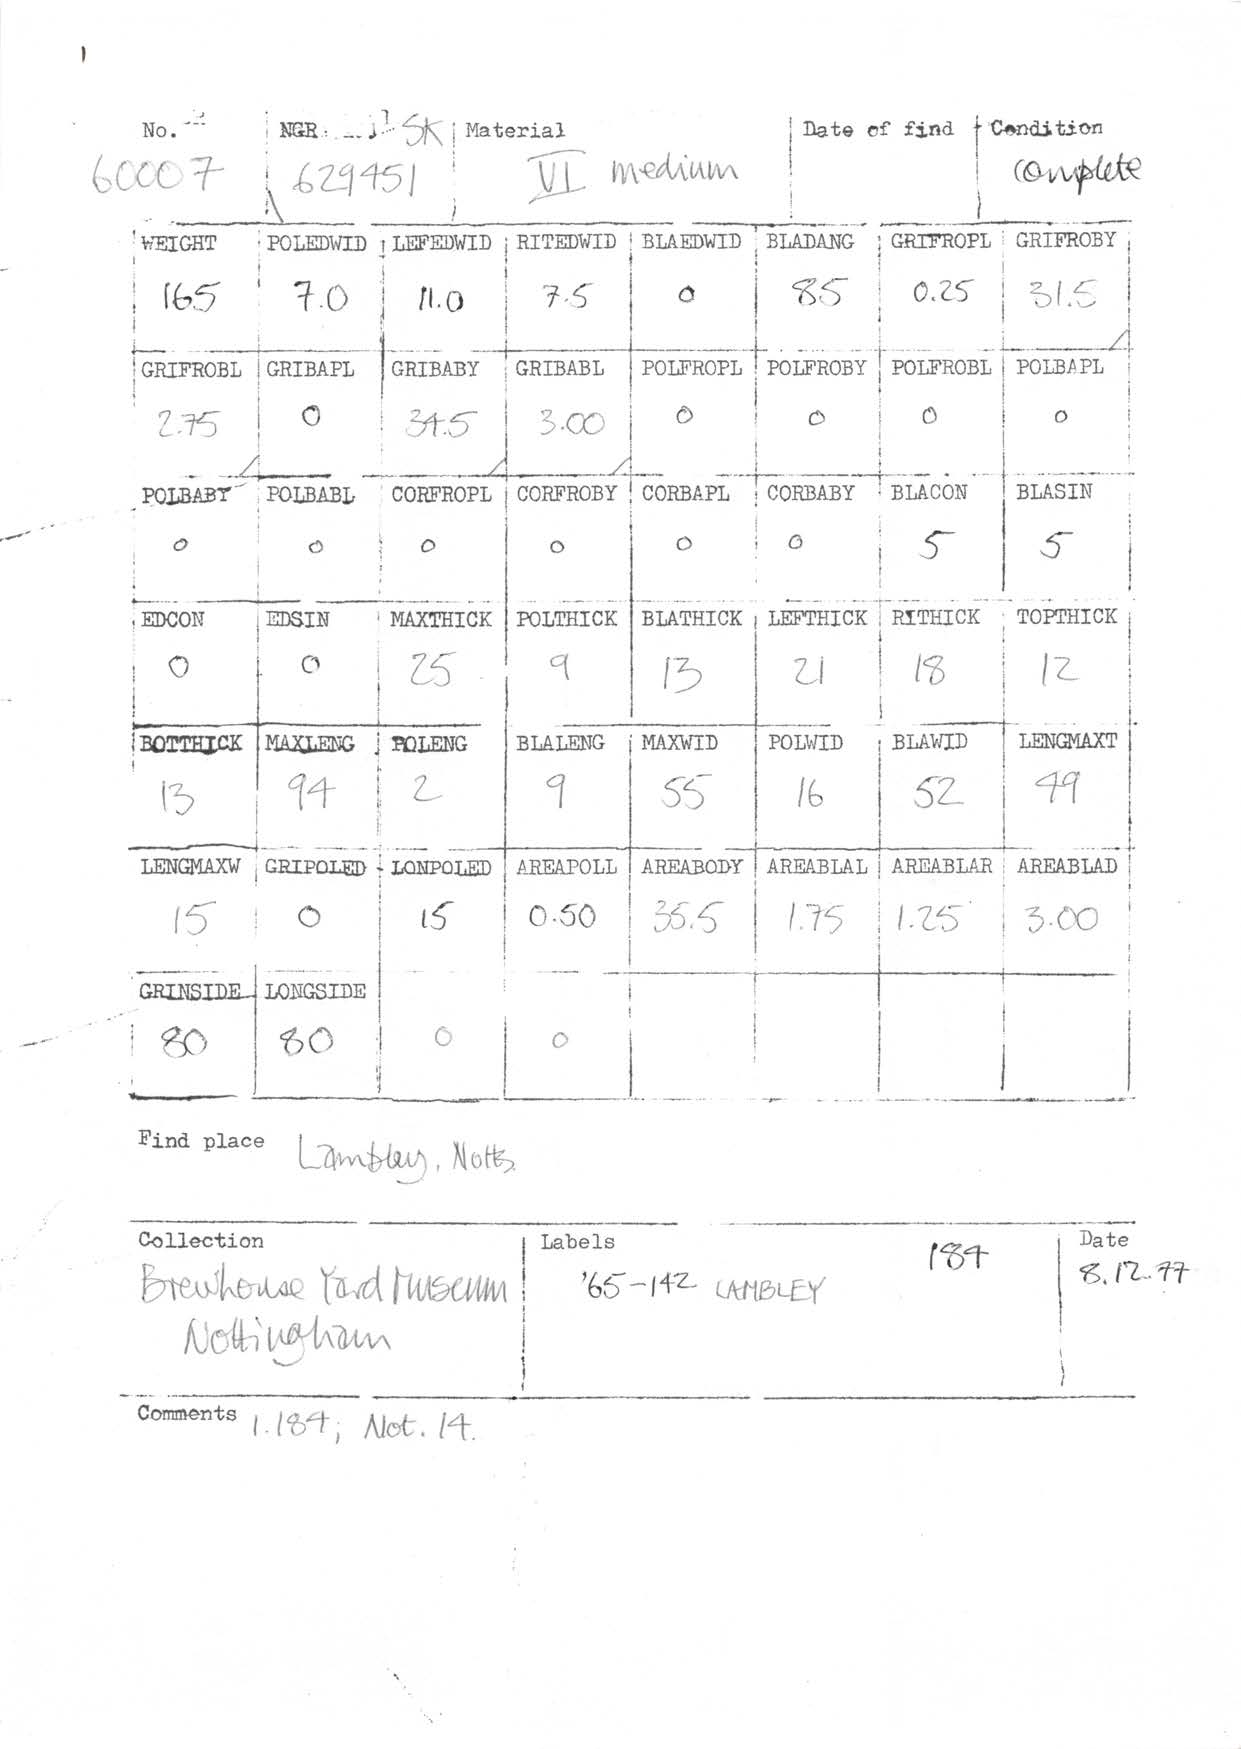 No. NGR SK Material Date of find Condition
60007 629451 VI medium complete
WEIGHT POLEDWID LEFEDWID RITEDWID BLAEDWID BLADANG GRIFROPL GRIFROBY
165 7.0 11.0 7.5 0 85 0.25 31.5
GRIFROBL GRIBAPL GRIBABY GRIBABL POLFROPL POLFROBY POLFROBL POLBAPL
2.75 0 34.5 3.00 0 0 0 0
POLBABY POLBABL CORFROPL CORFROBY CORBAPL CORBABY BLACON BLASIN
0 0 0 0 0 0 5 5
EDCON EDSIN MAXTHICK POLTHICK BLATHICK LEFTHICK RITHICK TOPTHICK
0 0 25 9 13 21 18 12
BOTTHICK MAXLENG POLENG BLALENG MAXWID POLWID BLAWID LENGMAXT
13 94 2 9 55 16 52 49
LENGMAXW GRIPOLED LONPOLED AREAPOLL AREABODY AREABLAL AREABLAR AREABLAD
15 0 15 0.50 35.5 1.75 1.25 3.00
GRINSIDE LONGSIDE
80 80 0 0
Find place Lambley, Notts
Collection Labels Date
184 8.12.77
Brewhouse Yard Museum '65-142 LAMBLEY
Nottingham
Comments 1.184; Not. 14.